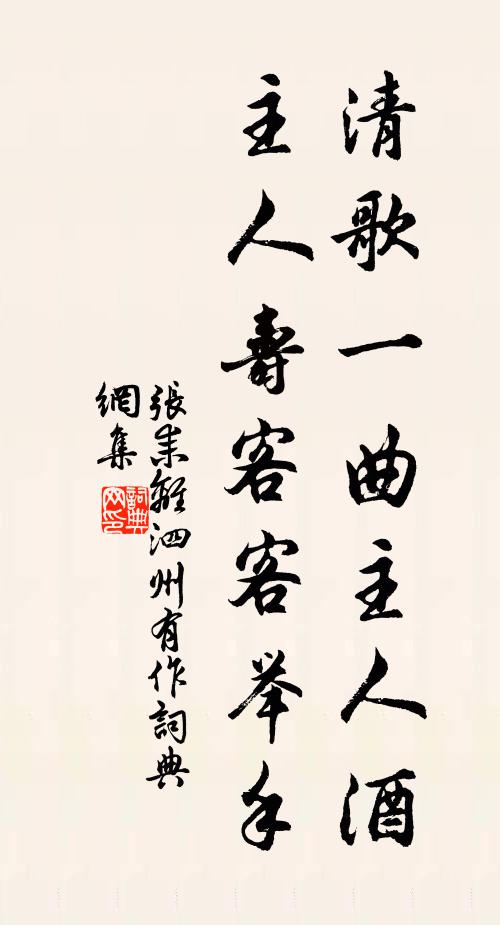 清歌一曲主人酒
主人壽客客举手
張耒離泗州有作詞典
網集
詞典网印